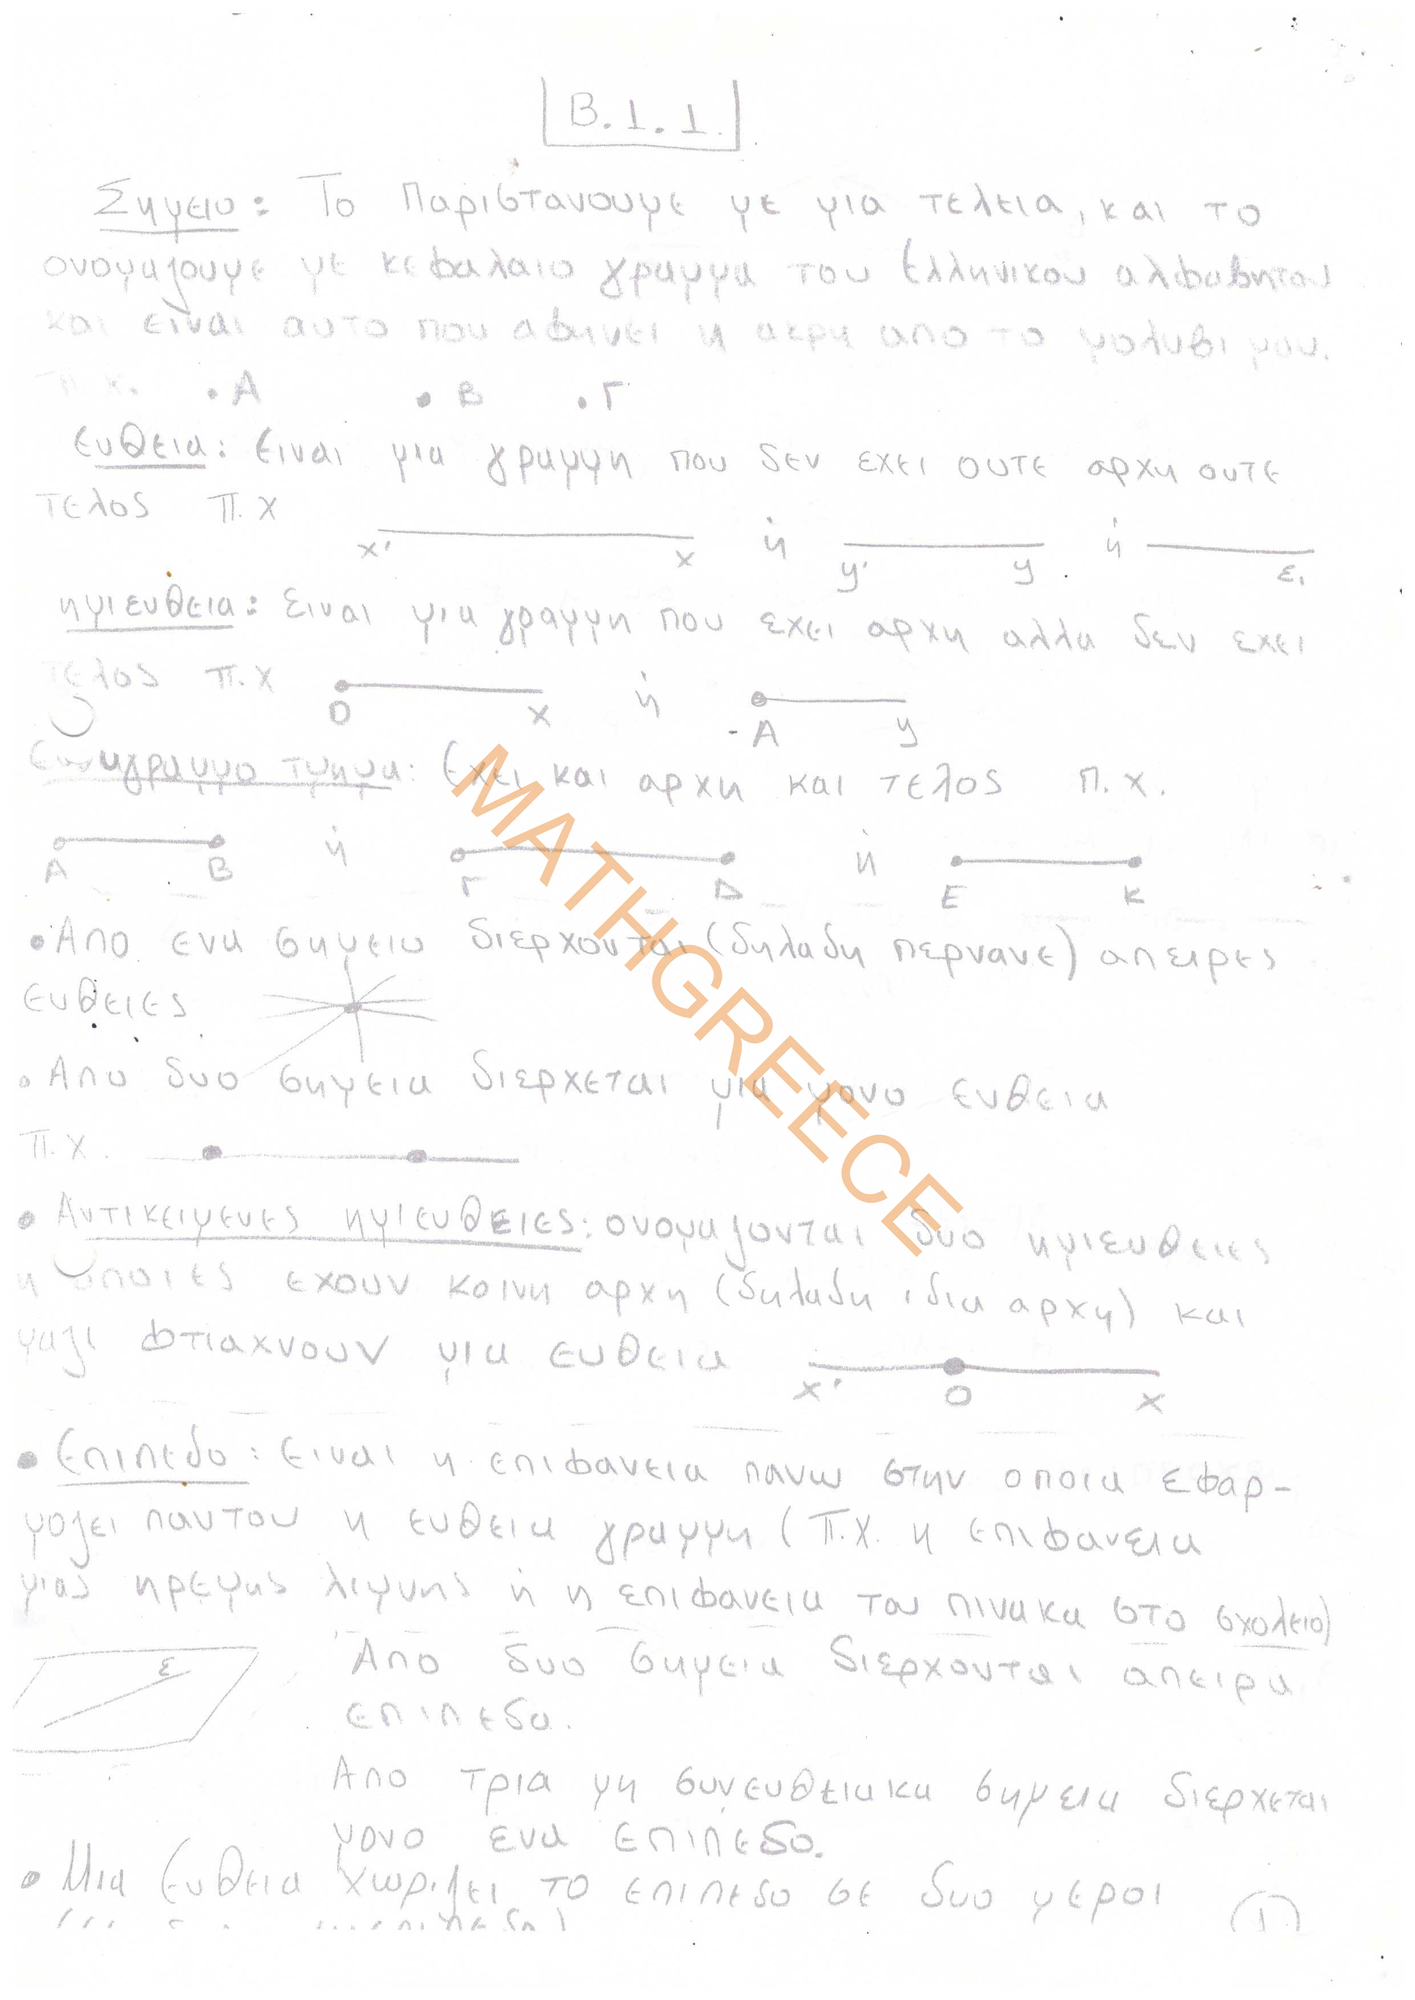 Β.1.1.
Σημειο: Το Παριστανουμε με μια τελεια, και το
ονομαζουμε με κεφαλαιο γραμμα του Ελληνικου αλφαβητου
και ειναι αυτο που αφηνει η ακρη απο το μολυβι μου.
π.χ. •Α •Β •Γ
Ευθεια: Ειναι μια γραμμη που δεν εχει ουτε αρχη ουτε
τελος π.χ
x' x ή y' y ή ε₁
ημιευθεια: Ειναι μια γραμμη που εχει αρχη αλλα δεν εχει
τελος π.χ
Ο x ή Α y
Ευθυγραμμο τμημα: Εχει και αρχη και τελος π.χ.
Α Β ή Γ Δ ή Ε Κ
• Απο ενα σημειο διερχονται (δηλαδη περνανε) απειρες
ευθειες
• Απο δυο σημεια διερχεται μια μονο ευθεια
π.χ.
• Αντικειμενες ημιευθειες: ονομαζονται δυο ημιευθειες
η οποιες εχουν κοινη αρχη (δηλαδη ιδια αρχη) και
μαζι φτιαχνουν μια ευθεια
x' Ο x
• Επιπεδο: Ειναι η επιφανεια πανω στην οποια εφαρ-
μοζει παντου η ευθεια γραμμη (π.χ. η επιφανεια
μιας ηρεμης λιμνης ή η επιφανεια του πινακα στο σχολειο)
ε
Απο δυο σημεια διερχονται απειρα
επιπεδα.
Απο τρια μη συνευθειακα σημεια διερχεται
μονο ενα επιπεδο.
• Μια Ευθεια χωριζει το επιπεδο σε δυο μεροι
1
MATHGREECE